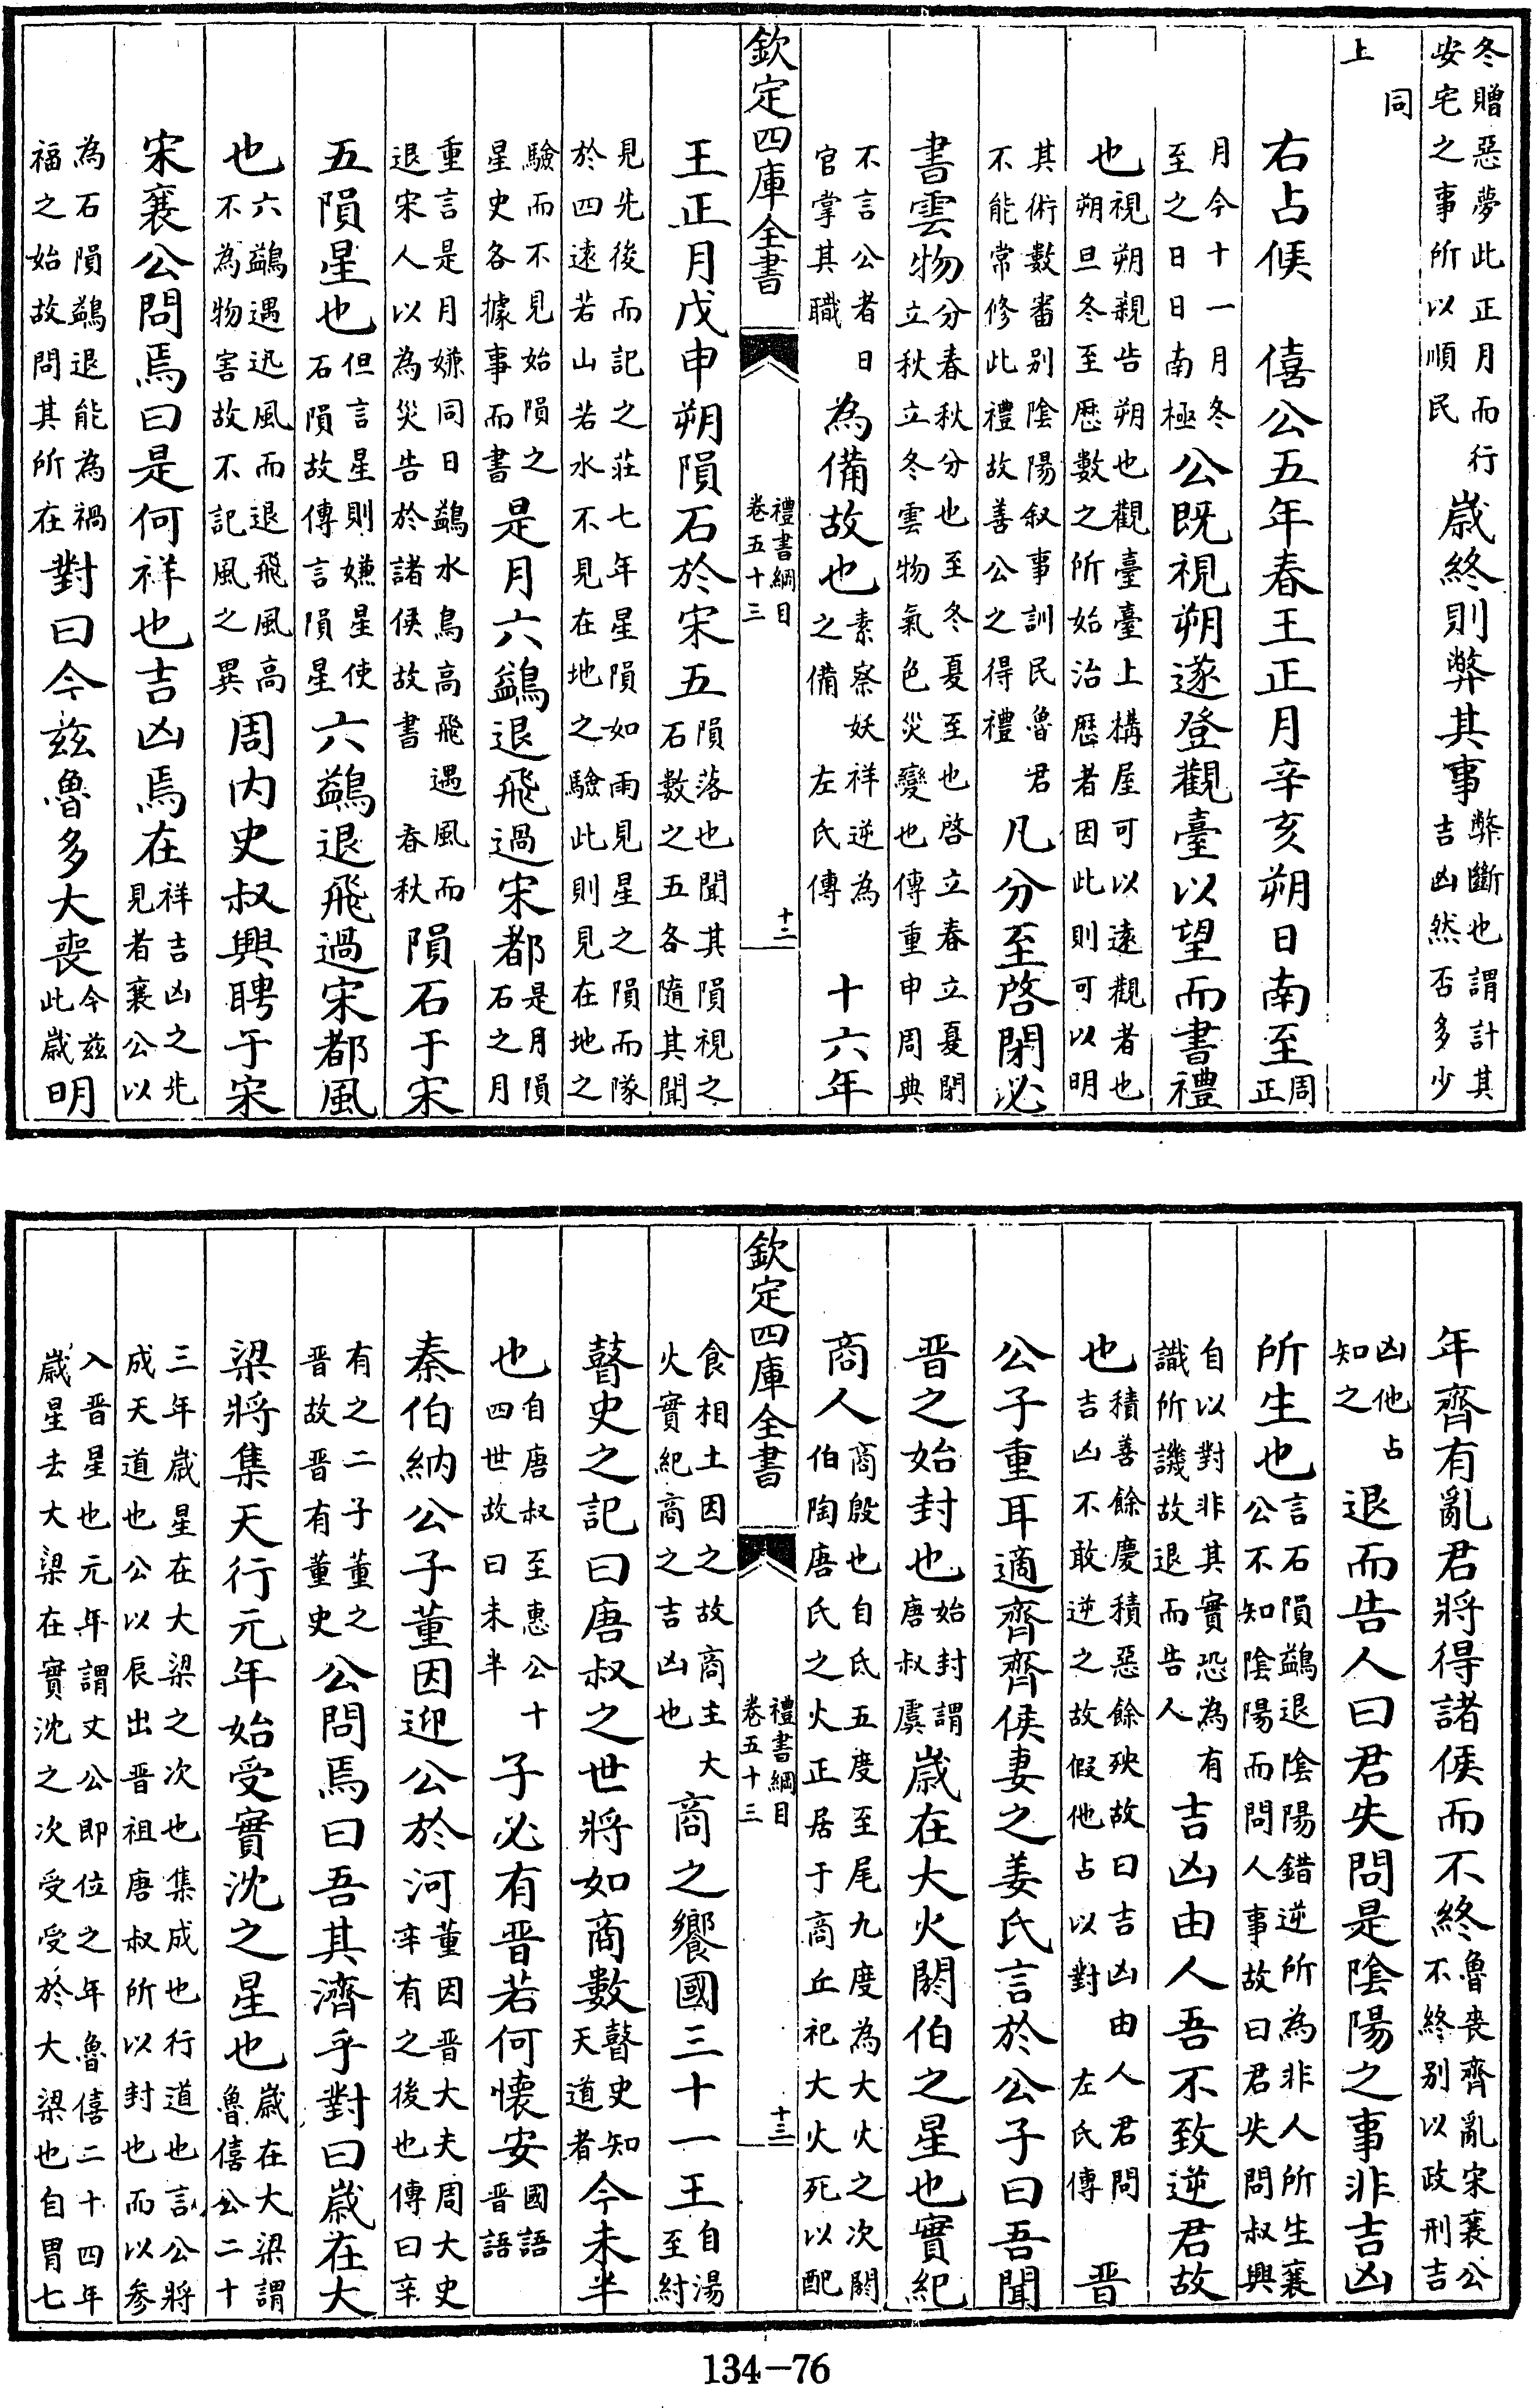 冬贈惡夢此正月而行安宅之事所以順民歲終則弊其事弊斷也謂計其吉凶然否多少
同上
右占候　僖公五年春王正月辛亥朔日南至周正
月今十一月冬至之日日南極公既視朔遂登觀臺以望而書禮
也視朔親告朔也觀臺臺上構屋可以遠觀者也朔旦冬至歴數之所始治歴者因此則可以明
其術數畨别隂陽叙事訓民魯君不能常修此禮故善公之得禮凡分至啓閉必
書雲物分春秋分也至冬夏至也啓立春立夏閉立秋立冬雲物氣色災變也傳重申周典
不言公者日官掌其職為備故也素察妖祥逆為之備　左氏傳　十六年
欽定四庫全書　禮書綱目卷五十三　十二
王正月戊申朔隕石於宋五隕落也聞其隕視之石數之五各隨其聞
見先後而記之莊七年星隕如雨見星之隕而隊於四遠若山若水不見在地之驗此則見在地之
驗而不見始隕之星史各據事而書是月六鷁退飛過宋都是月隕石之月
重言是月嫌同日鷁水鳥高飛遇風而退宋人以為災告於諸侯故書　春秋隕石于宋
五隕星也但言星則嫌星使石隕故傳言隕星六鷁退飛過宋都風
也六鷁遇迅風而退飛風高不為物害故不記風之異周内史叔興聘于宋
宋襄公問焉曰是何祥也吉凶焉在祥吉凶之先見者襄公以
為石隕鷁退能為禍福之始故問其所在對曰今茲魯多大喪今茲此歲明
年齊有亂君將得諸侯而不終魯喪齊亂宋襄公不終别以政刑吉
凶他占知之退而告人曰君失問是陰陽之事非吉凶
所生也言石隕鷁退陰陽錯逆所為非人所生襄公不知陰陽而問人事故曰君失問叔興
自以對非其實恐為有識所譏故退而告人吉凶由人吾不致逆君故
也積善餘慶積惡餘殃故曰吉凶由人君問吉凶不敢逆之故假他占以對　左氏傳　晉
公子重耳適齊齊侯妻之姜氏言於公子曰吾聞
晉之始封也始封謂唐叔虞歲在大火閼伯之星也實紀
商人商殷也自氐五度至尾九度為大火之次閼伯陶唐氏之火正居于商丘祀大火死以配
欽定四庫全書　禮書綱目卷五十三　十三
食相土因之故商主大火實紀商之吉凶也商之饗國三十一王自湯至紂
瞽史之記曰唐叔之世將如商數瞽史知天道者今未半
也自唐叔至惠公十四世故曰未半子必有晉若何懷安國語晉語
秦伯納公子董因迎公於河董因晉大夫周大史辛有之後也傳曰辛
有之二子董之晉故晉有董史公問焉曰吾其濟乎對曰歲在大
梁將集天行元年始受實沈之星也歲在大梁謂魯僖公二十
三年歲星在大梁之次也集成也行道也言公將成天道也公以辰出晉祖唐叔所以封也而以参
入晉星也元年謂文公即位之年魯僖二十四年歲星去大梁在實沈之次受受於大梁也自胃七
134—76